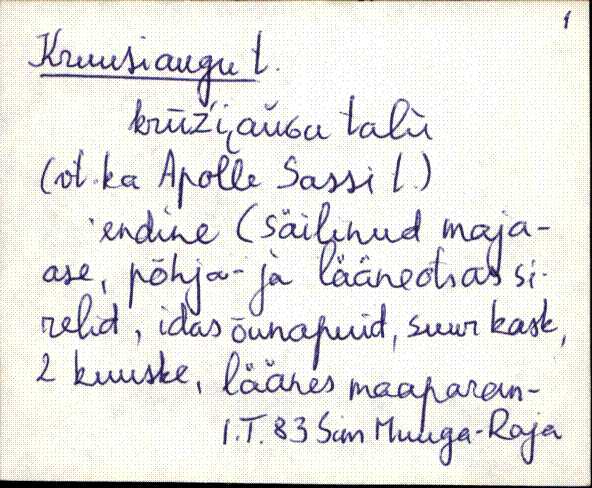 1
Kruusiaugu t.
krūž́i̮ auGu talu̬
(vt. ka Apolle Sassi t.)
endine (säilinud maja-
ase, põhja- ja lääneotsas si-
relid, idas õunapuid, suur kask,
2 kuuske, läänes maaparan-
I.T. 83 Sim Muuga-Roja